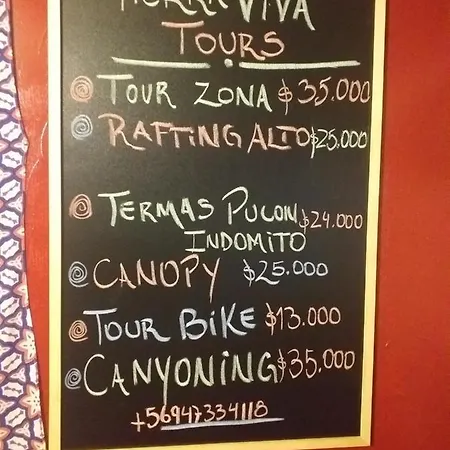 TIERRA VIVA
TOURS
TOUR ZONA $35.000
RAFTING ALTO $25.000
TERMAS PUCON $24.000
INDOMITO
CANOPY $25.000
TOUR BIKE $13.000
CANYONING $35.000
+56947334118